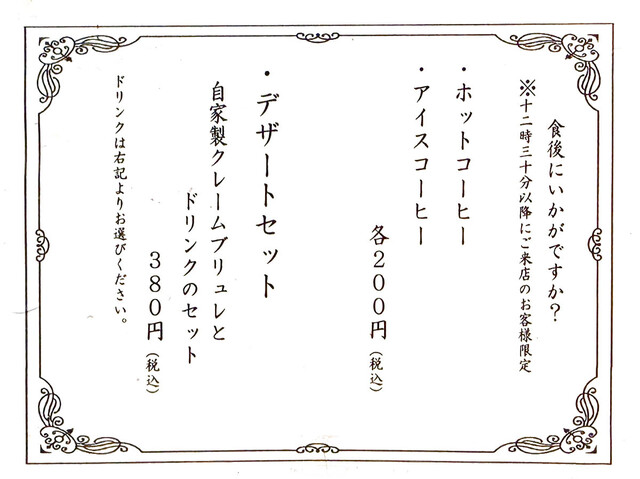 食後にいかがですか?
※十二時三十分以降にご来店のお客様限定
・ホットコーヒー
・アイスコーヒー
各200円(税込)
・デザートセット
自家製クレームブリュレと
ドリンクのセット
380円(税込)
ドリンクは右記よりお選びください。